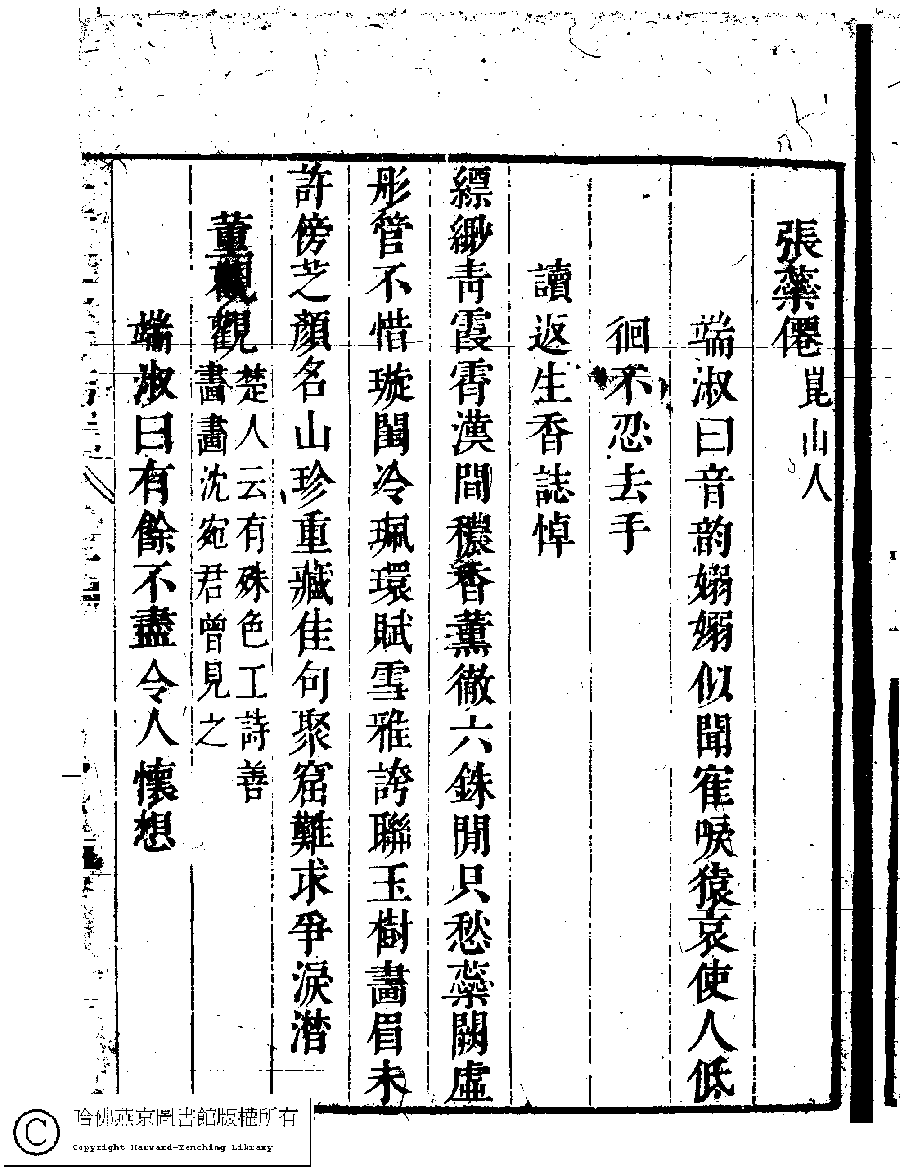 張蘂僊崑山人
端淑曰音韵嫋嫋似聞寉唳猿哀使人低
徊不忍去手
讀返生香誌悼
縹緲青霞霄漢間穠香薰徹六銖閒只愁蘂闕虛
彤管不惜璇閨冷珮環賦雪雅誇聯玉樹畫眉未
許傍芝顏名山珍重藏佳句聚窟難求爭淚潸
董觀觀楚人云有殊色工詩善
書畫沈宛君曾見之
端淑曰有餘不盡令人懷想
哈佛燕京圖書館版權所有
Copyright Harvard-Yenching Library